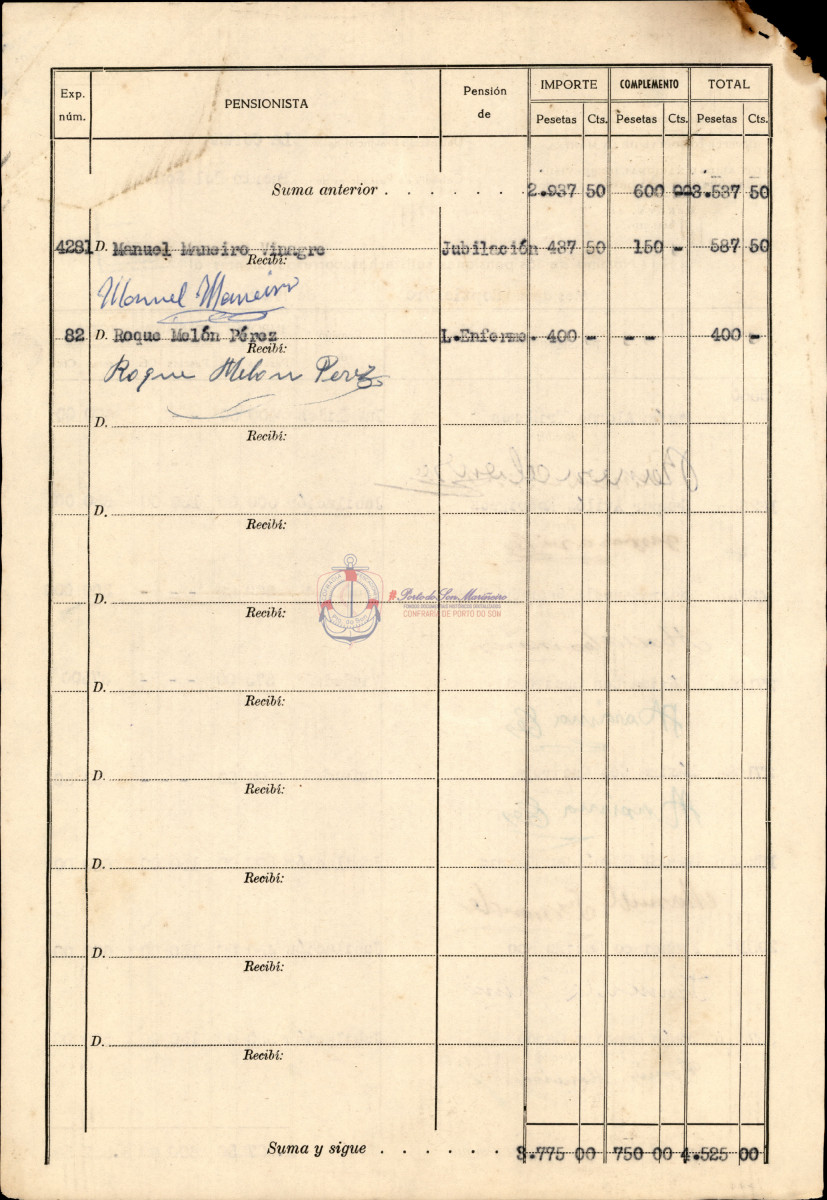 Exp. núm. PENSIONISTA Pensión de IMPORTE COMPLEMENTO TOTAL
Pesetas Cts. Pesetas Cts. Pesetas Cts.
Suma anterior . . . . . . . 2.937 50 600 00 3.537 50
4281 D. Manuel Maneiro Vinagre Jubilación 437 50 150 - 587 50
Recibí:
Manuel Maneiro
82 D. Roque Melón Pérez L.Enferme. 400 - - - 400 -
Recibí:
Roque Melon Perez
D.
Recibí:
D.
Recibí:
D.
Recibí:
Porto do Son Mariñeiro
FONDOS DOCUMENTAIS HISTÓRICOS DIXITALIZADOS
CONFRARÍA DE PORTO DO SON
D.
Recibí:
D.
Recibí:
D.
Recibí:
D.
Recibí:
D.
Recibí:
Suma y sigue . . . . . . 3.775 00 750 00 4.525 00